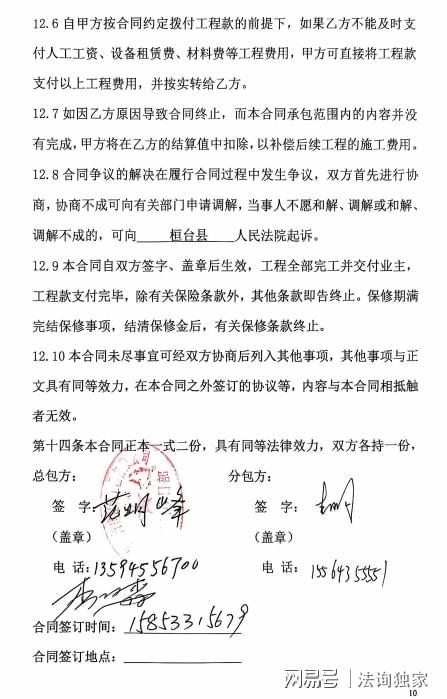 12.6 自甲方按合同约定拨付工程款的前提下，如果乙方不能及时支
付人工工资、设备租赁费、材料费等工程费用，甲方可直接将工程款
支付以上工程费用，并按实转给乙方。
12.7 如因乙方原因导致合同终止，而本合同承包范围内的内容并没
有完成，甲方将在乙方的结算值中扣除，以补偿后续工程的施工费用。
12.8 合同争议的解决在履行合同过程中发生争议，双方首先进行协
商，协商不成可向有关部门申请调解，当事人不愿和解、调解或和解、
调解不成的，可向 桓台县 人民法院起诉。
12.9 本合同自双方签字、盖章后生效，工程全部完工并交付业主，
工程款支付完毕，除有关保险条款外，其他条款即告终止。保修期满
完结保修事项，结清保修金后，有关保修条款终止。
12.10 本合同未尽事宜可经双方协商后列入其他事项，其他事项与正
文具有同等效力，在本合同之外签订的协议等，内容与本合同相抵触
者无效。
第十四条本合同正本一式二份，具有同等法律效力，双方各持一份，
总包方： 分包方：
签 字： 签 字：
（盖章） （盖章）
电 话：13594556700 电 话：15564355551
合同签订时间：15853315679
合同签订地点：
10
网易号 | 法询独家